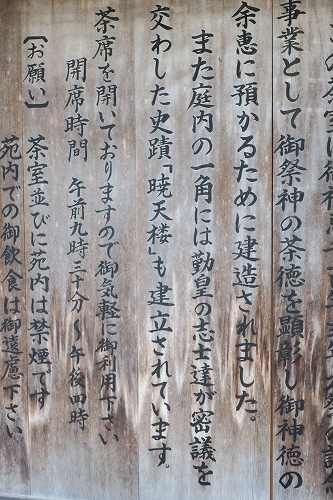 事業として御祭神の茶徳を顕彰し御神徳の
余恵に預かるために建造されました。
また庭内の一角には勤皇の志士達が密議を
交わした史蹟「暁天楼」も建立されています。
茶席を開いておりますので御気軽に御利用下さい
開席時間 午前九時三十分~午後四時
【お願い】 茶室並びに苑内は禁煙です
苑内での御飲食は御遠慮下さい